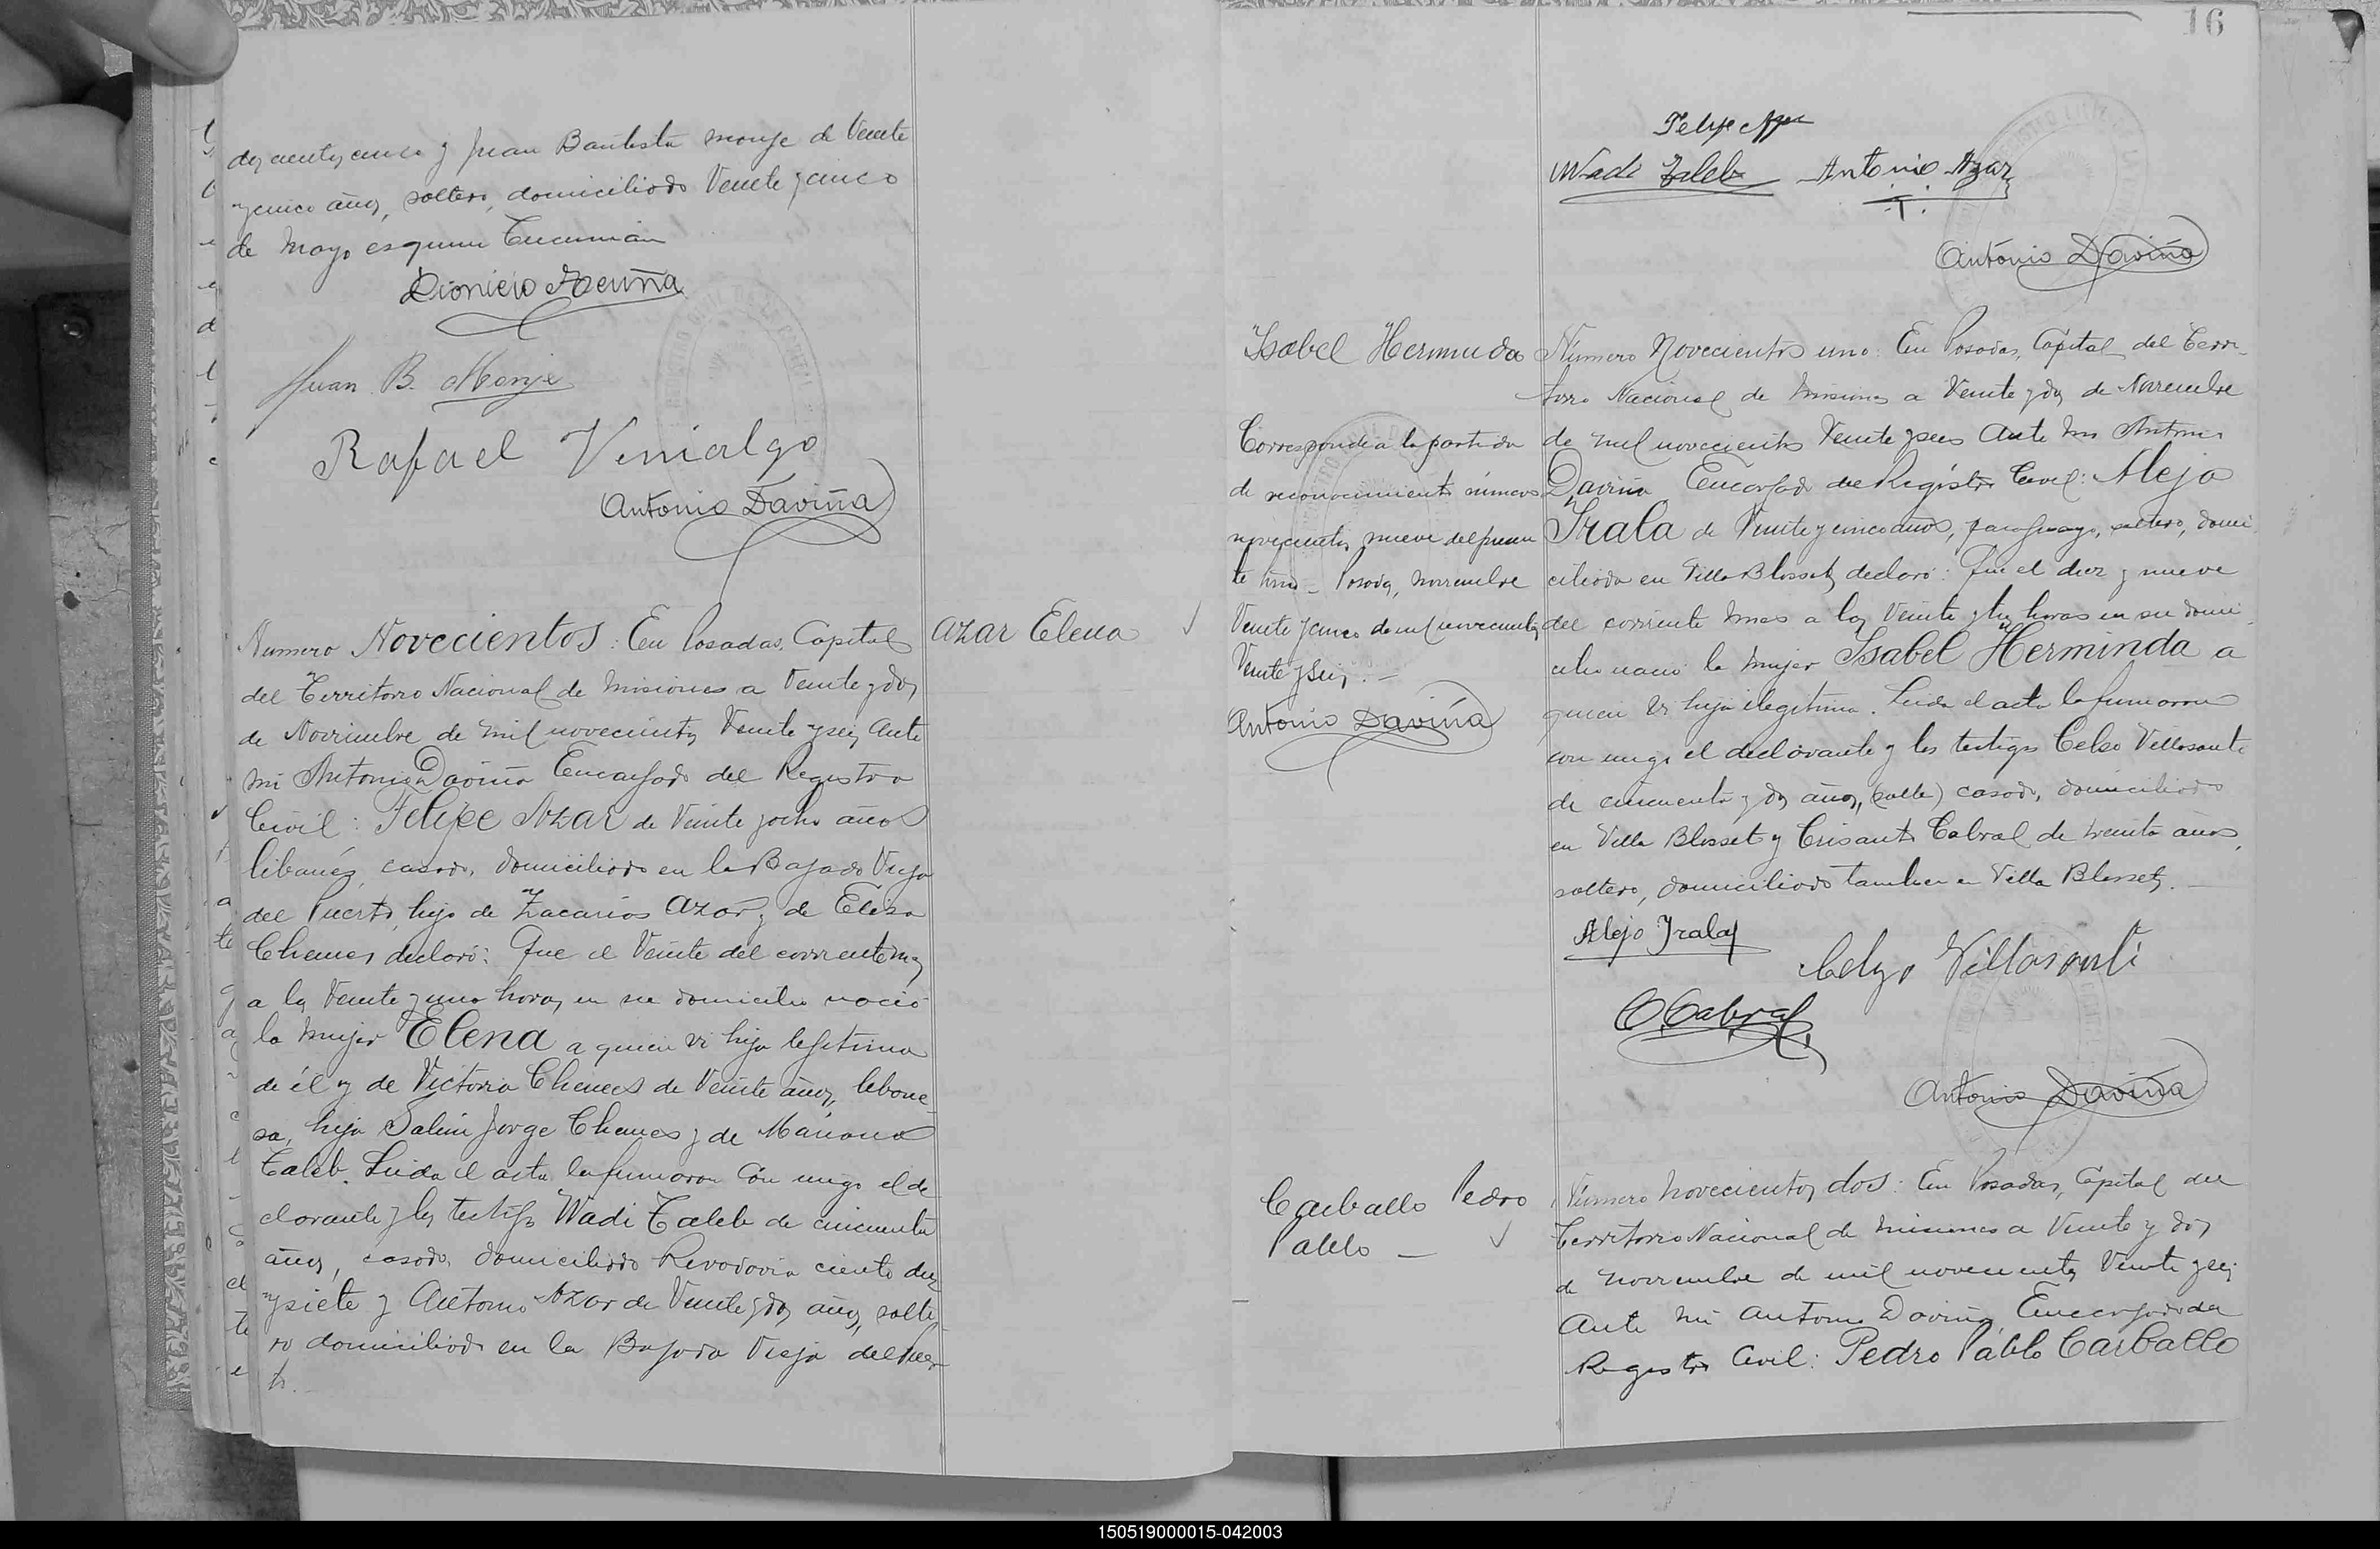 doscientos cinco y Juan Bautista Monje de Veinte
y cinco años, soltero, domiciliado Veinte y cinco
de Mayo esquina Tucumán
Dionicio Acuña
Juan B. Monje
Rafael Venialgo
Antonio Daviña
Azar Elena
Numero Novecientos: En Posadas, Capital
del Territorio Nacional de Misiones a Veinte y dos
de Noviembre de mil novecientos Veinte y seis Ante
mi Antonio Daviña Encargado del Registro
Civil: Felipe Azar de Veinte y ocho años
libanés, casado, domiciliado en la Bajada Vieja
del Puerto, hijo de Zacarias Azar y de Elisa
Chemes declaró: Que el Veinte del corriente mes
a las Veinte y una horas, en su domicilio nació
la mujer Elena a quien vi hija legítima
de él y de Victoria Chemes de Veinte años, libane
sa, hija Salim Jorge Chemes y de Mariana
Taleb. Leida el acta la firmaron con migo el de
clarante y los testigos Wadi Taleb de cincuenta
años, casado, domiciliado Rivadavia ciento diez
y siete y Antonio Azar de Veinte y dos años, solte
ro domiciliado en la Bajada Vieja del Puer
to.
16
Felipe Azar
Wadi Taleb Antonio Azar
Antonio Daviña
Isabel Herminda
Corresponde a la partida
de reconocimiento número
novecientos nueve del presen
te libro - Posadas, noviembre
Veinte y cinco de mil novecientos
Veinte y seis. -
Antonio Daviña
Número Novecientos uno: En Posadas, Capital del Terri-
torio Nacional de Misiones a Veinte y dos de Noviembre
de mil novecientos Veinte y seis Ante mi Antonio
Daviña Encargado del Registro Civil: Alejo
Irala de Veinte y cinco años, paraguayo, soltero, domi
ciliado en Villa Blosset, declaró: Que el diez y nueve
del corriente mes a las Veinte y tres horas en su domi
cilio nació la mujer Isabel Herminda a
quien vi hija ilegítima. Leida el acta la firmaron
con migo el declarante y los testigos Celso Villasanti
de cincuenta y dos años, (solte) casado, domiciliado
en Villa Blosset y Crisanto Cabral de treinta años,
soltero, domiciliado tambien en Villa Blosset. -
Alejo Irala
Celzo Villasanti
C. Cabral
Antonio Daviña
Carballo Pedro
Pablo -
Número Novecientos dos: En Posadas, Capital del
Territorio Nacional de Misiones a Veinte y dos
de noviembre de mil novecientos Veinte y seis
Ante mi Antonio Daviña, Encargado del
Registro Civil: Pedro Pablo Carballo
150519000015-042003